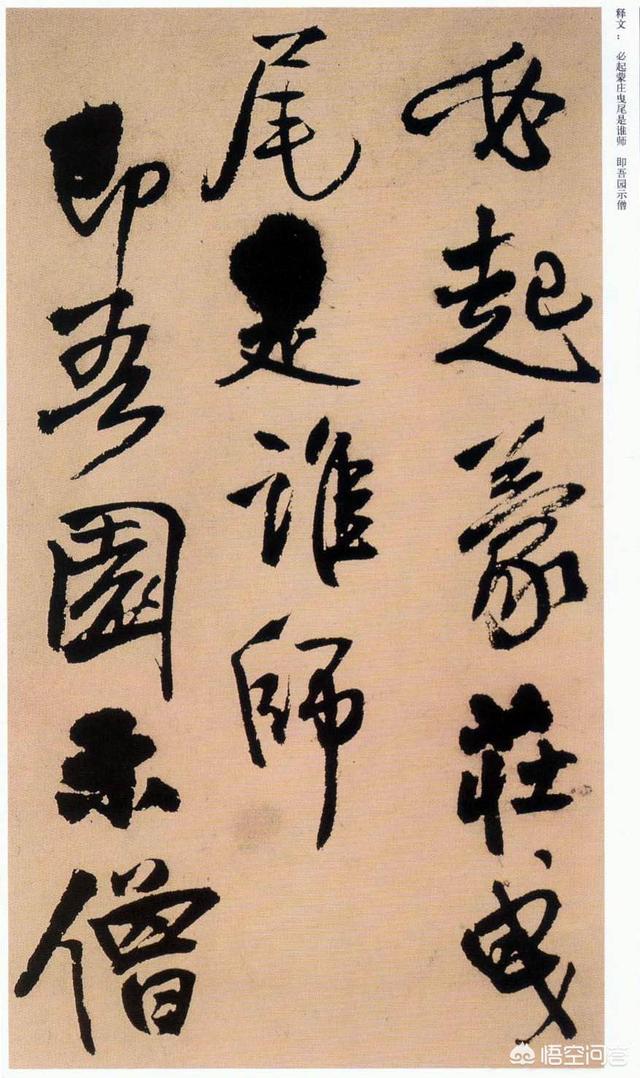 释文： 必起蒙庄曳尾是谁师 即吾园示僧
必起蒙莊曳
尾是誰師
即吾園示僧
悟空问答